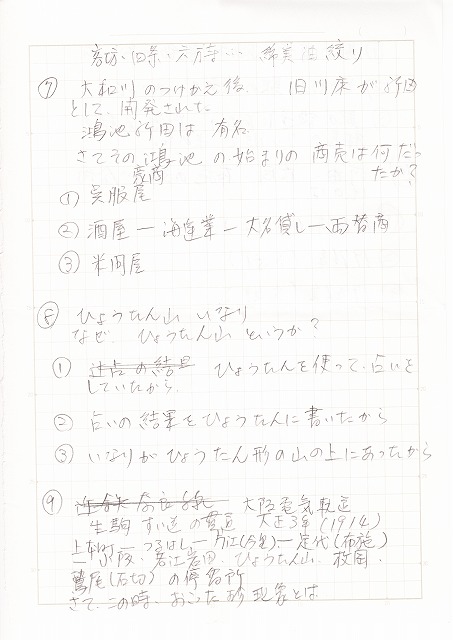 ⑦ 大和川のつけかえ後 旧川床が新田
として、開発された
鴻池新田は 有名
さてその鴻池の始まりの商売は何だっ
豪商 たか?
① 呉服屋
② 酒屋ー海運業ー大名貸しー両替商
③ 米問屋
⑧ ひょうたん山 いなり
なぜ、ひょうたん山というか?
① ひょうたんを使って、占いを
していたから
② 占いの結果をひょうたんに書いたから
③ いなりがひょうたん形の山の上にあったから
⑨ 大阪電気軌道
生駒 すい道の貫通 大正3年(1914)
上本町ーつるはしー片江(今里)ー足代(布施)
ー小阪、若江岩田、ひょうたん山、枚岡、
鷲尾(石切)の停留所
さて、この時、おこった 現象とは